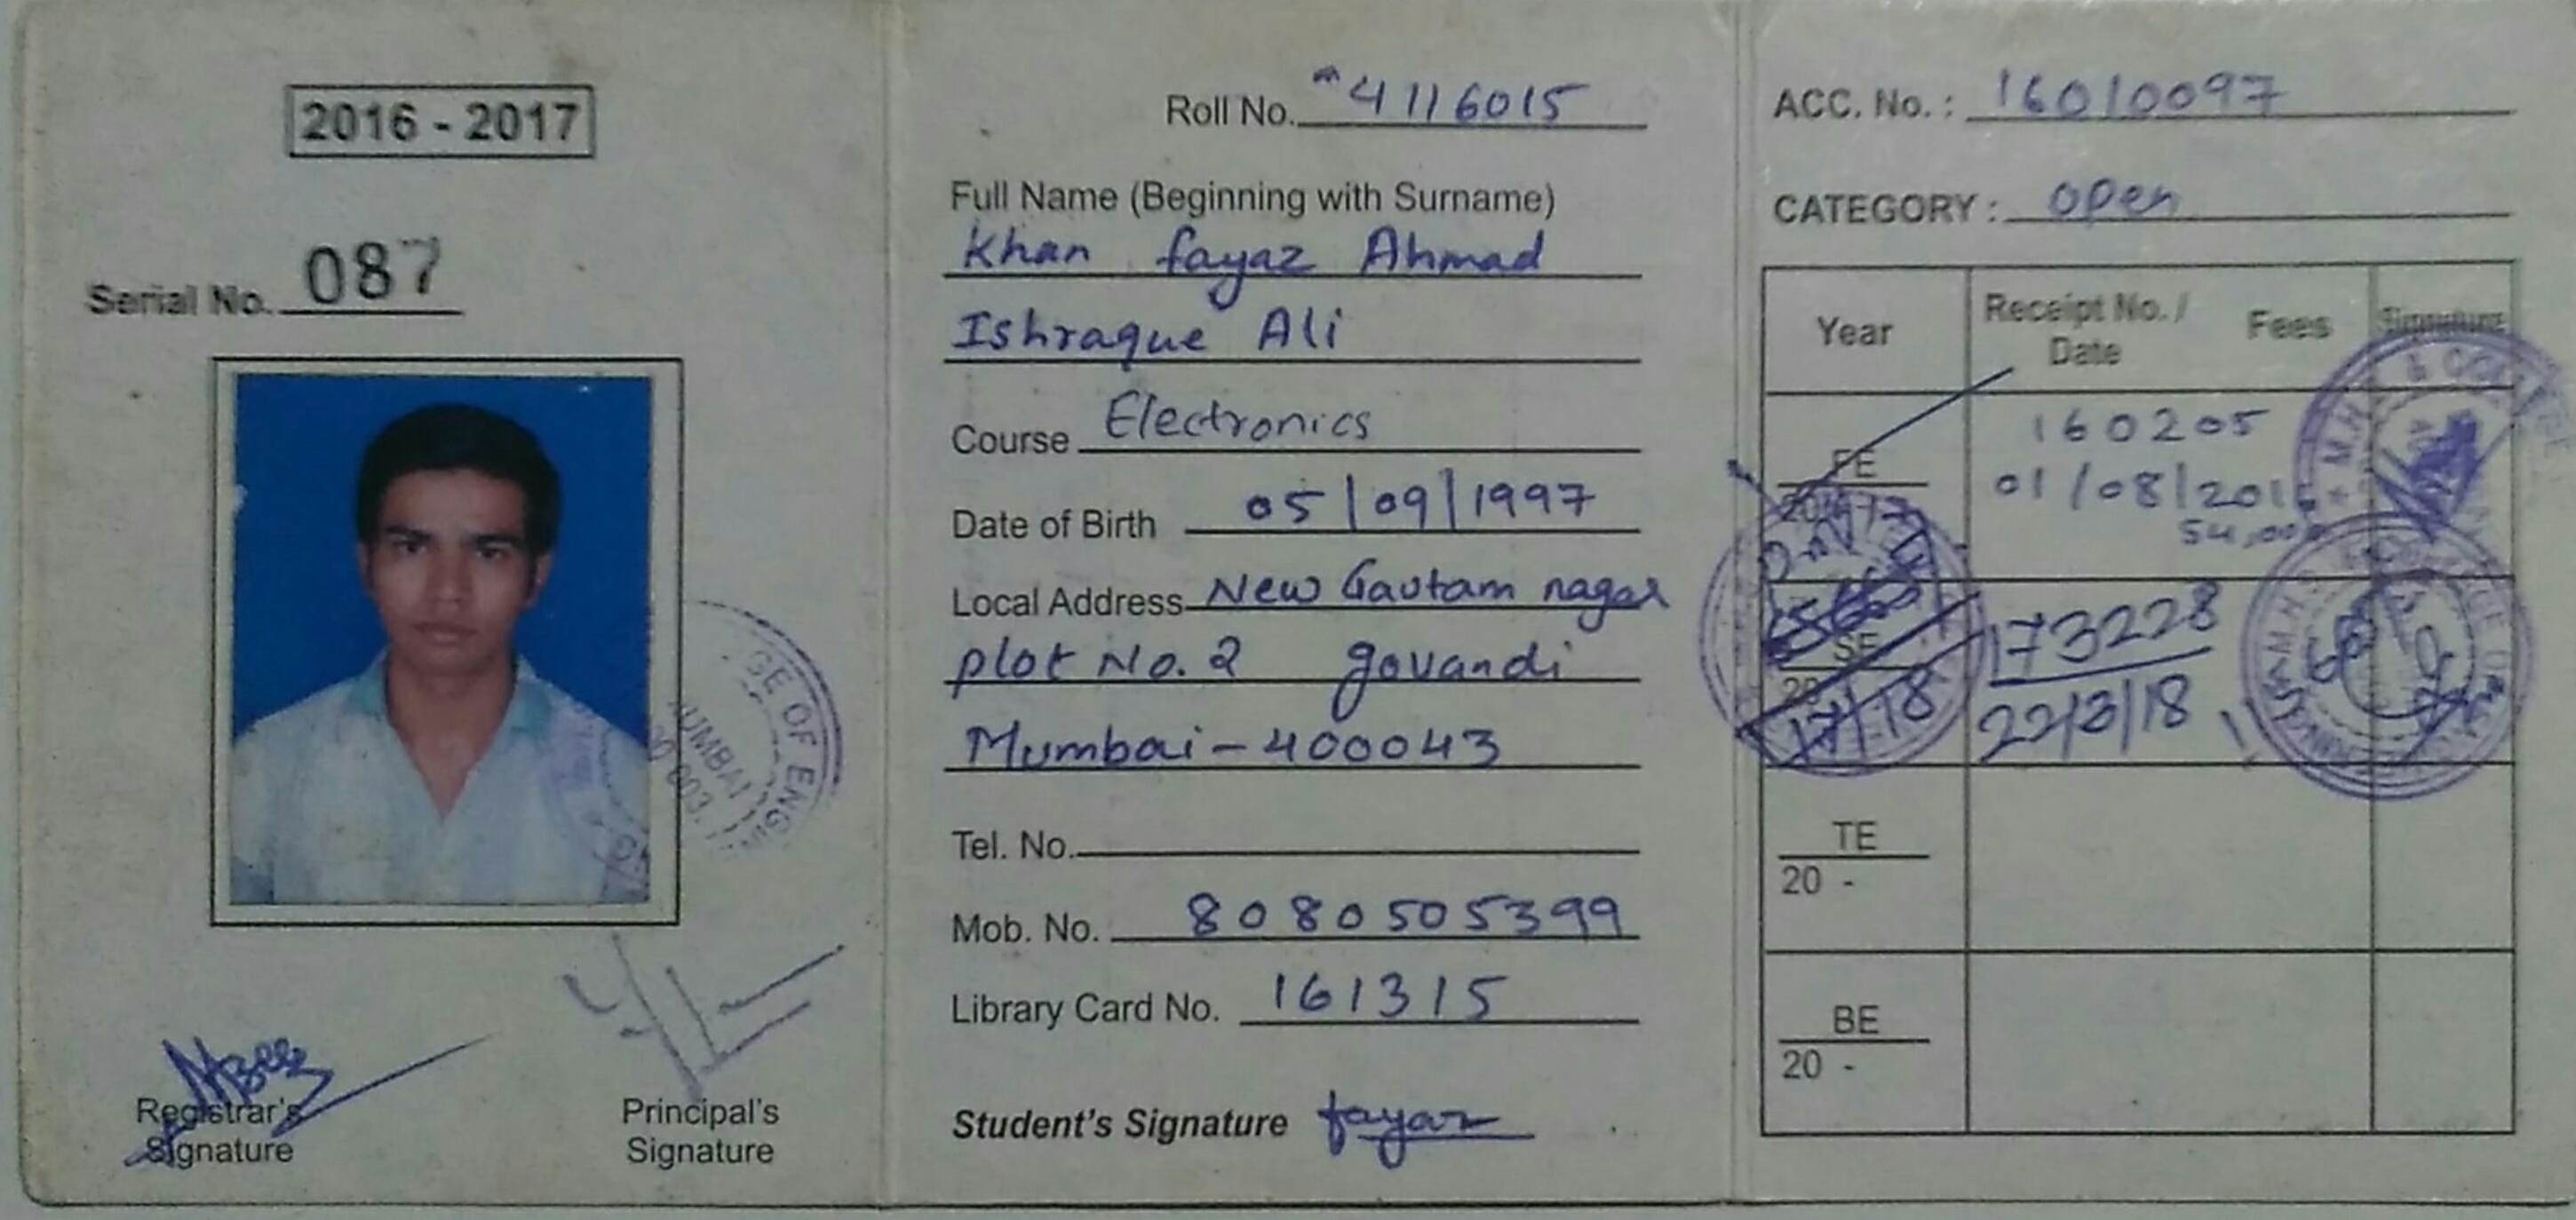 2016 - 2017
Serial No. 087
GE OF ENG
UMBAI
Registrar's
Signature
Principal's
Signature
Roll No. 4116015
Full Name (Beginning with Surname)
Khan fayaz Ahmad
Ishraque Ali
Course Electronics
Date of Birth 05/09/1997
Local Address New Gautam nagar
plot No. 2 govandi
Mumbai - 400043
Tel. No.
Mob. No. 8080505399
Library Card No. 161315
Student's Signature fayaz
ACC. No. : 16010097
CATEGORY : open
Year Receipt No. / Date Fees Signature
FE 160205
01/08/2016
54,000
SE 173228
17/-18 22/3/18
TE
20 -
BE
20 -